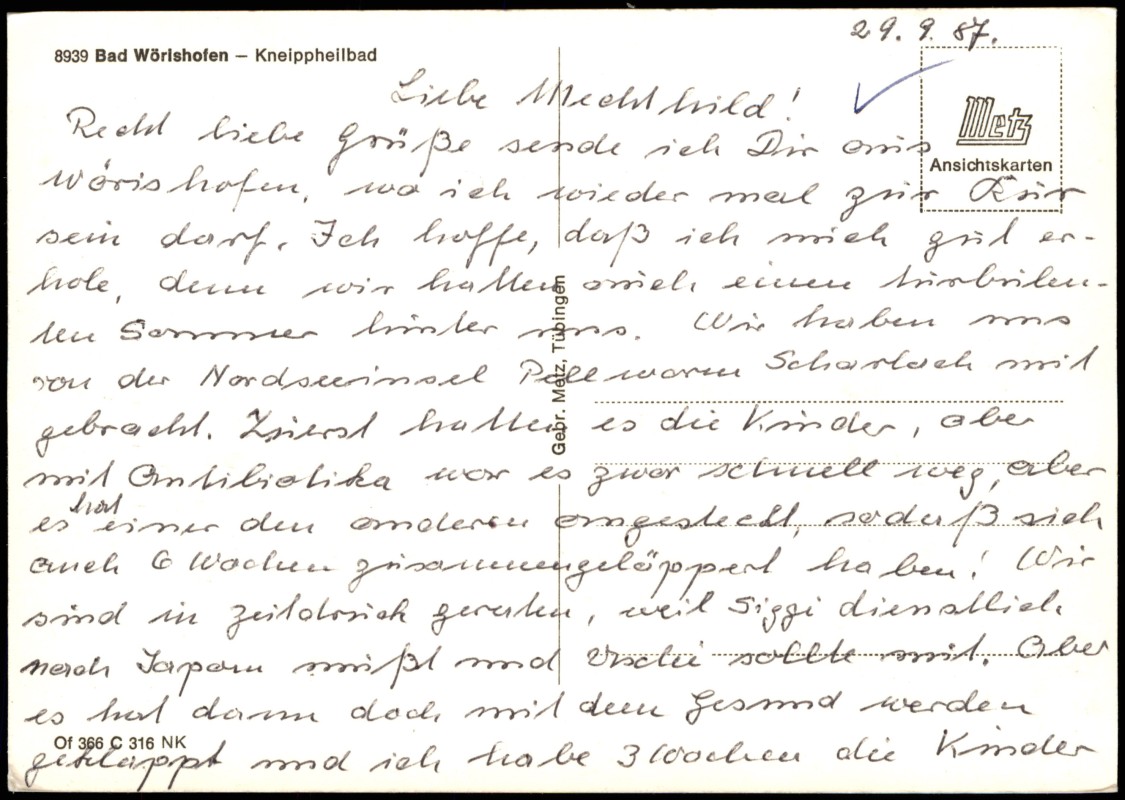 29. 9. 87.
8939 Bad Wörishofen – Kneippheilbad
Metz
Ansichtskarten
Liebe Mechthild!
Recht liebe Grüße sende ich Dir aus
Wörishofen, wo ich wieder mal zur Kur
sein darf. Ich hoffe, daß ich mich gut er-
hole, denn wir hatten auch einen turbulen-
ten Sommer hinter uns. Wir haben uns
von der Nordseeinsel Pellworm Scharlach mit
gebracht. Zuerst hatten es die Kinder, aber
mit Antibiotika war es zwar schnell weg, aber
es hat einer den anderen angesteckt, sodaß sich
auch 6 Wochen zusammengeläppert haben! Wir
sind in Zeitdruck geraten, weil Siggi dienstlich
nach Japan mußt und Uschi sollte mit. Aber
es hat dann doch mit dem Gesund werden
geklappt und ich habe 3 Wochen die Kinder
Gebr. Metz, Tübingen
Of 366 C 316 NK